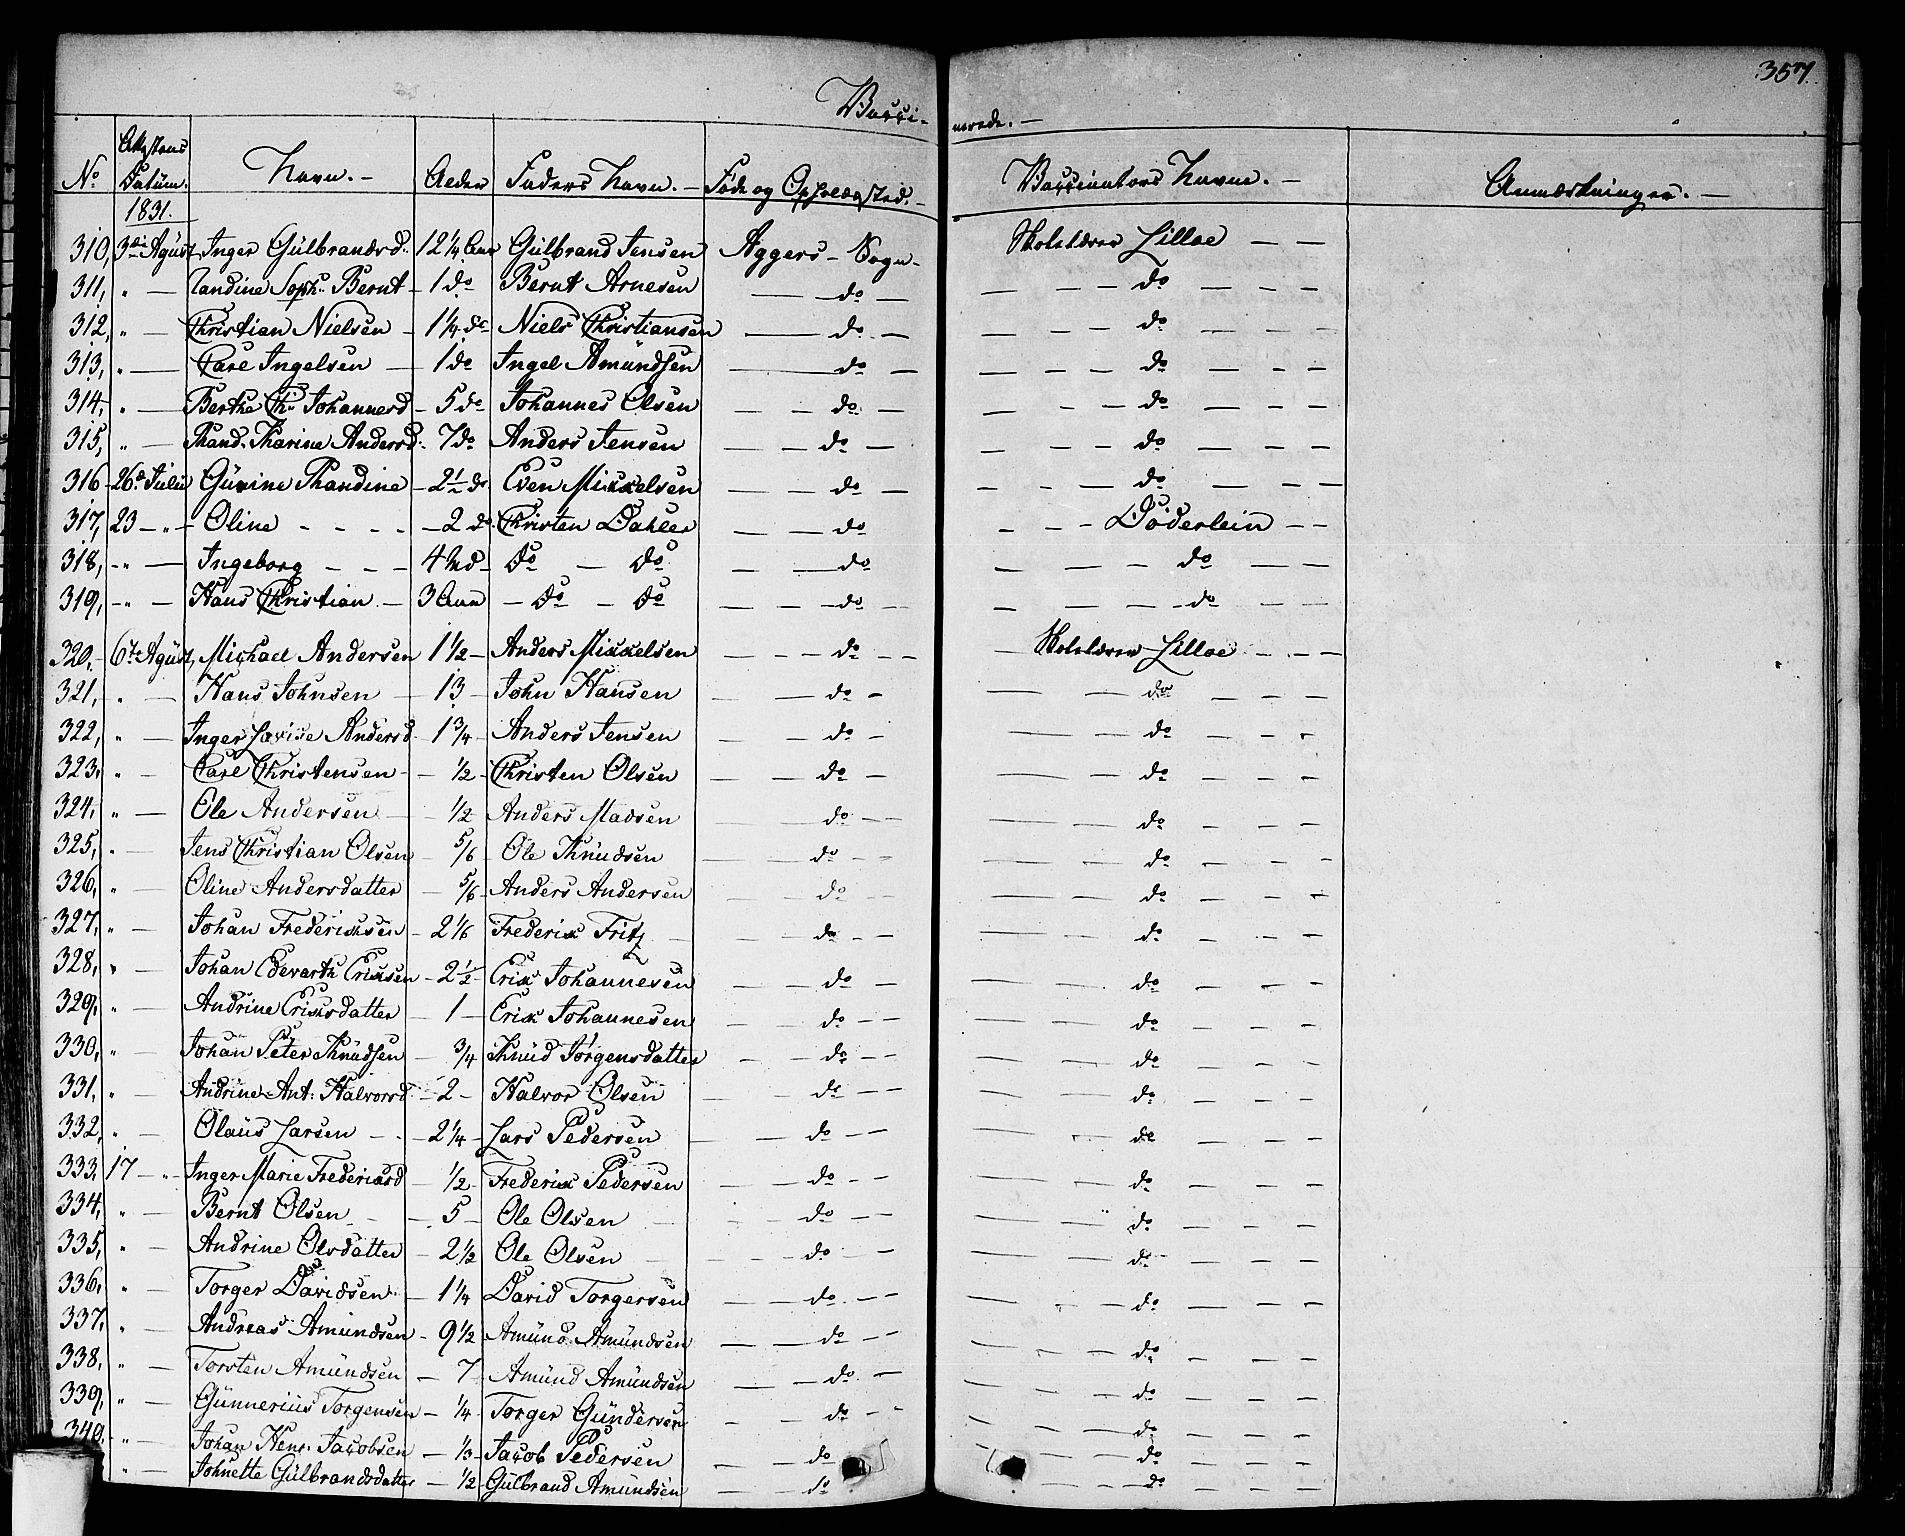 357.
Vacci- nerede. —
No Attestens Datum. Navn. — Alder Faders Navn. — Føde og Opholdssted. — Vaccinators Navne. — Anmærkninger. —
1831.
310, 3die Agüst Inger Gülbrandsd. 12 1/4 Aar Gülbrand Jensen Aggers - Sogn - Skolelærer Lilloe — —
311, " — Randine Soph: Bernt - 1 do Bernt Arnesen — do — — — do — — —
312, " — Christian Nielsen - 1 1/4 do Niels Christiansen — do — — — — do — — —
313, " — Carl Ingelsen — 1 do Ingel Amündsen — do — — — — do — — —
314, " — Berthe Chr: Johannesd - 5 do Johannes Olsen — do — — — — do — — —
315, " — Rand. Karine Andersd. 7 do Anders Jensen — do — — — — do — — —
316 - 26de Julii Günine Randine - 2 1/2 do Even Mikkelsen — — do — — — — do — — —
317, 23 - " - Oline - - - - 2 do Christen Dahler — — do — - - Döderlein - -
318, - " — Ingeborg - - - 4 Md - do — do — — do — — — do — — —
319, - " - Hans Christian - 3 Aar - do - do — — do - - — — — do — — —
320, - 6te Agüst, Michael Andersen 1 1/2 - Anders Mikkelsen — — do - - — Skolelærer Lilloe - - -
321, " — Hans Johnsen — 13 - John Hansen — — do - — — do — - -
322, " — Inger Lovise Andersd - 1 3/4 - Anders Jensen — — do - — — do — - -
323, " — Carl Christensen - - 1/2 - Christen Olsen — — do — — — do — - -
324, " — Ole Andersen — 1/2 Anders Madsen — do - - — — do — - -
325, " — Jens Christian Olsen - 5/6 - Ole Knüdsen — do - - — — do — - -
326, " — Oline Andersdatter — 5/6 - Anders Andersen — do - - — — do — - -
327, " — Johan Frederiksen - 2 1/6 Frederik Fritz — — do - - — — do — - -
328, " — Johan Edevarth Eriksen - 2 1/2 - Erik Johannesen — — do - — — do — - -
329, " — Andrine Eriksdatter — 1 — Erik Johannesen — - do - - — — do — - -
330, " — Johan Peter Knüdsen — 3/4 Knüd Jørgensdatter - — do - - — — do — - -
331, " — Andrine Ant: Halvorsd. - 2 - Halvor Olsen — — do - - — — do — - -
332, " — Olaüs Larsen - - - 2 1/4 - Lars Pedersen — — do - - — — do — - -
333, 17 - " - Inger Marie Frederiksd - 1/2 - Frederik Pedersen — — do - - — — do — - -
334, " — Bernt Olsen - - 5 - Ole Olsen — do - - — — do — - -
335, " — Andrine Olsdatter - 2 1/2 Ole Olsen — — do - - — — do — - -
336, " — Torger Davidsen - 1 1/4 David Torgersen — — do - - — — do — - -
337, " — Andreas Amündsen - 9 1/2 Amünd Amündsen — — do - - — — do — - -
338, " — Torsten Amündsen — 7 Amünd Amündsen — — do - - — — do — - -
339, " — Günnerius Torgensen - 1/4 Torger Gündersen - — do - - — — do — - -
340, - " - Johan Henr. Jacobsen - 1/3 - Jacob Pedersen — — do — — do — - -
" — Johnette Gülbrandsdatter - 1/2 - Gülbrand Amündsen — — do — — do — - -